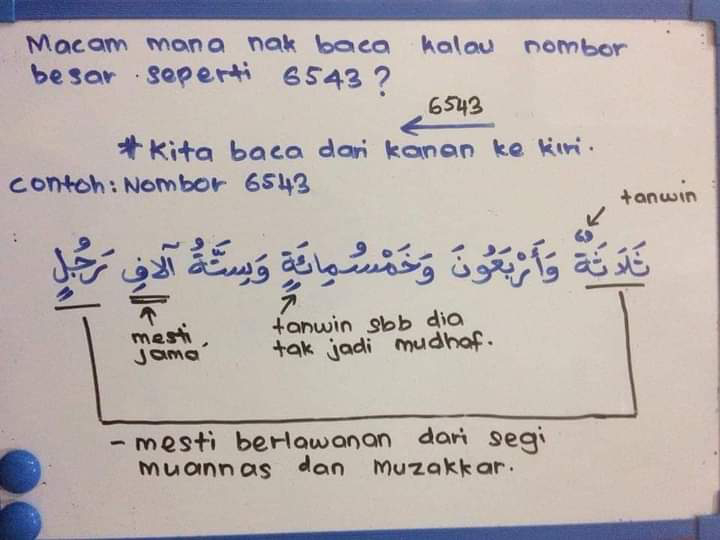 Macam mana nak baca kalau nombor
besar seperti 6543?
6543
* Kita baca dari kanan ke kiri.
contoh: Nombor 6543
tanwin
ثَلَاثَةٌ وَأَرْبَعُونَ وَخَمْسُمِائَةٍ وَسِتَّةُ آلَافِ رَجُلٍ
mesti
jama'
tanwin sbb dia
tak jadi mudhaf.
- mesti berlawanan dari segi
muannas dan muzakkar.